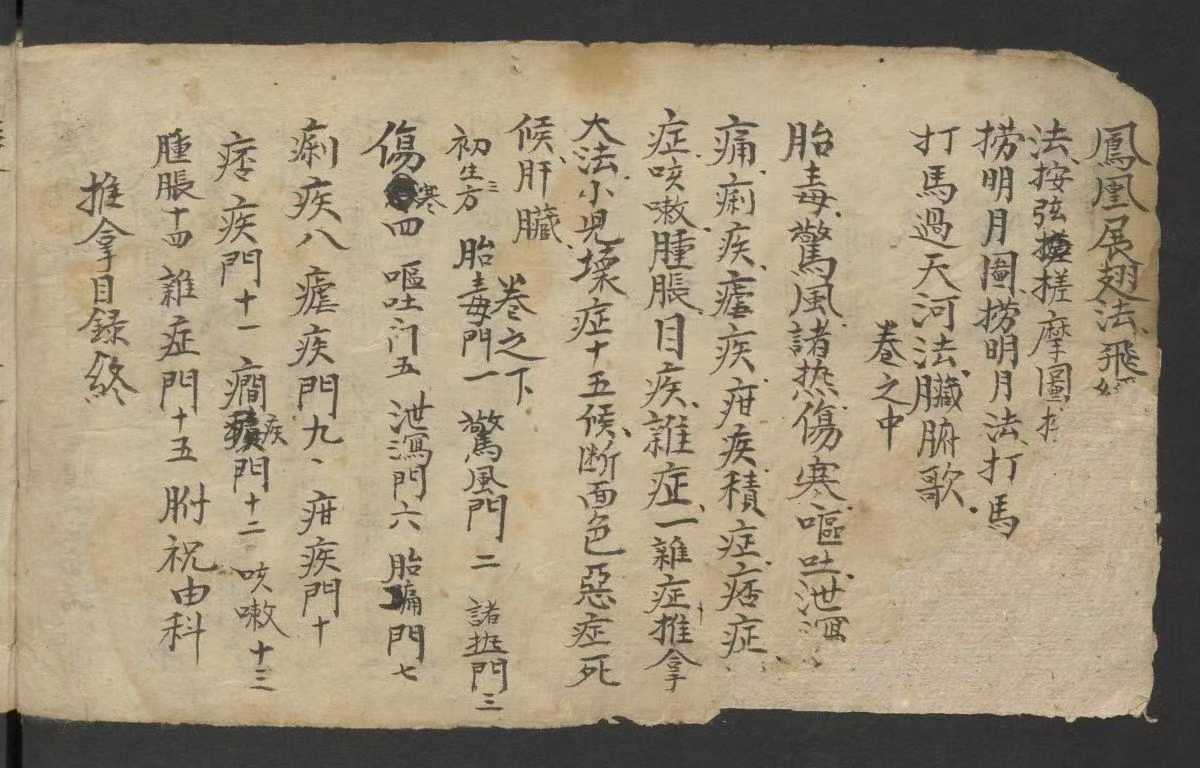 鳳凰展翅法飛
法按弦搓摩圖
捞明月圖捞明月法打馬
打馬過天河法臟腑歌
卷之中
胎毒驚風諸热傷寒嘔吐泄瀉
痛痢疾瘧疾疳疾積症痞症
症咳嗽腫脹目疾雜症一雜症推拿
大法小児壊症十五候断面色惡症死
候肝臟
卷之下
初生方 胎毒門一 驚風門二 諸热門三
傷寒四 嘔吐门五 泄瀉門六 胎痛門七
痢疾八 瘧疾門九 疳疾門十
痞疾門十一 癇疾門十二 咳嗽十三
腫脹十四 雜症門十五 附祝由科
推拿目録終